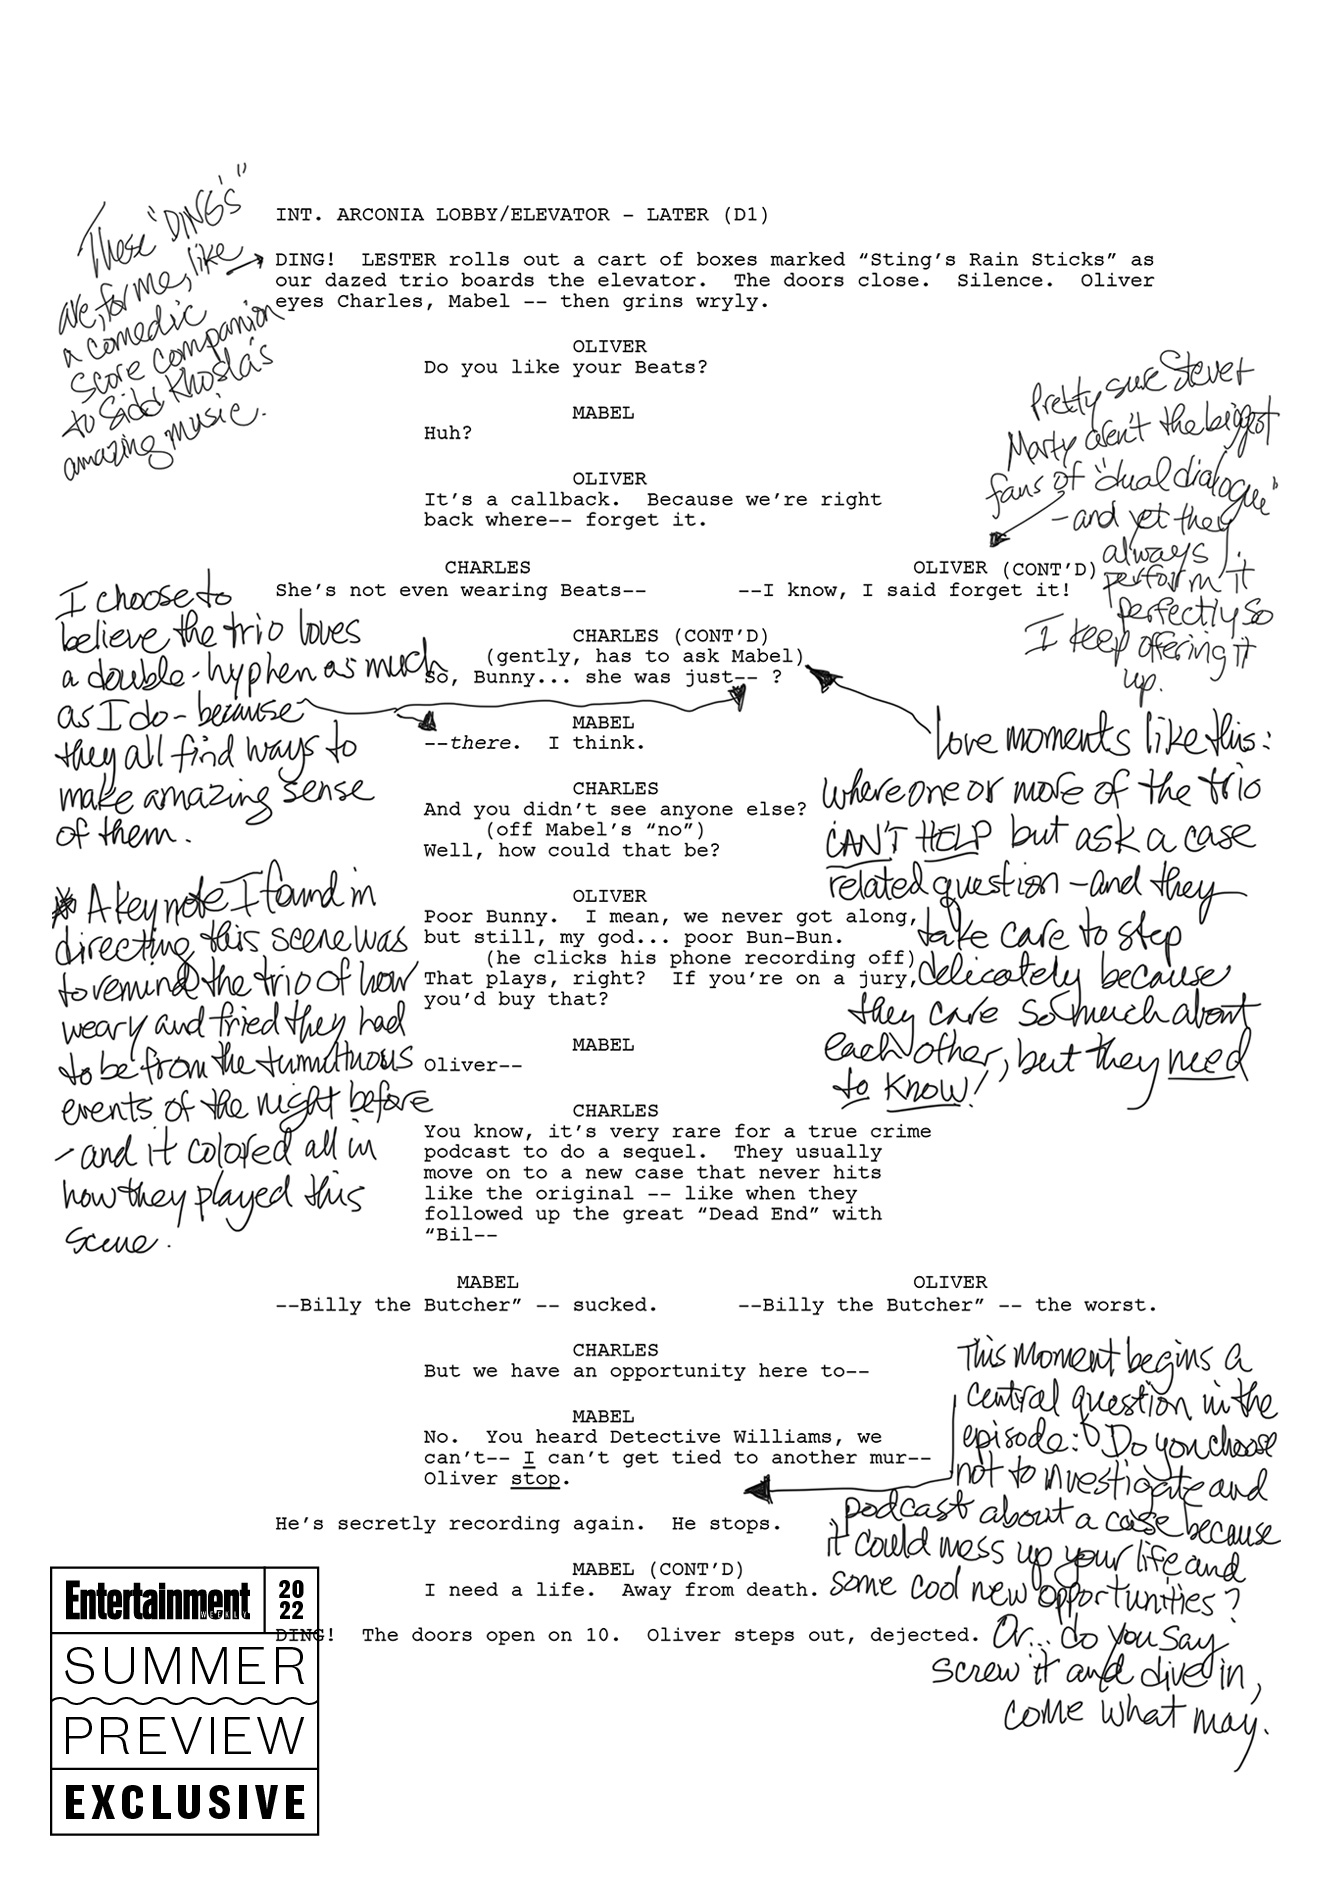 These "DING'S"
are, for me, like
a comedic
score companion
to Sidd Khosla's
amazing music.
INT. ARCONIA LOBBY/ELEVATOR – LATER (D1)
DING!  LESTER rolls out a cart of boxes marked “Sting’s Rain Sticks” as
our dazed trio boards the elevator.  The doors close.  Silence.  Oliver
eyes Charles, Mabel -- then grins wryly.
OLIVER
Do you like your Beats?
MABEL
Huh?
OLIVER
It’s a callback.  Because we’re right
back where-- forget it.
Pretty sure Steve +
Marty aren't the biggest
fans of "dual dialogue"
-and yet they
always
perform it
perfectly so
I keep offering it
up.
CHARLES
She’s not even wearing Beats--
OLIVER (CONT’D)
--I know, I said forget it!
CHARLES (CONT’D)
(gently, has to ask Mabel)
So, Bunny... she was just-- ?
I choose to
believe the trio loves
a double-hyphen as much
as I do - because
they all find ways to
make amazing sense
of them.
MABEL
--there.  I think.
Love moments like this:
where one or more of the trio
CAN'T HELP but ask a case
related question - and they
take care to step
delicately because
they care so much about
each other, but they need
to KNOW!
CHARLES
And you didn’t see anyone else?
(off Mabel’s “no”)
Well, how could that be?
OLIVER
Poor Bunny.  I mean, we never got along,
but still, my god... poor Bun-Bun.
(he clicks his phone recording off)
That plays, right?  If you’re on a jury,
you’d buy that?
* A key note I found in
directing this scene was
to remind the trio of how
weary and fried they had
to be from the tumultuous
events of the night before
- and it colored all in
how they played this
scene.
MABEL
Oliver--
CHARLES
You know, it’s very rare for a true crime
podcast to do a sequel.  They usually
move on to a new case that never hits
like the original -- like when they
followed up the great “Dead End” with
“Bil--
MABEL
--Billy the Butcher” -- sucked.
OLIVER
--Billy the Butcher” -- the worst.
CHARLES
But we have an opportunity here to--
MABEL
No.  You heard Detective Williams, we
can’t-- I can’t get tied to another mur--
Oliver stop.
This moment begins a
central question in the
episode: Do you choose
not to investigate and
podcast about a case because
it could mess up your life and
some cool new opportunities?
Or... do you say
screw it and dive in,
come what may.
He’s secretly recording again.  He stops.
MABEL (CONT’D)
I need a life.  Away from death.
DING!  The doors open on 10.  Oliver steps out, dejected.
Entertainment
WEEKLY
20
22
SUMMER
PREVIEW
EXCLUSIVE